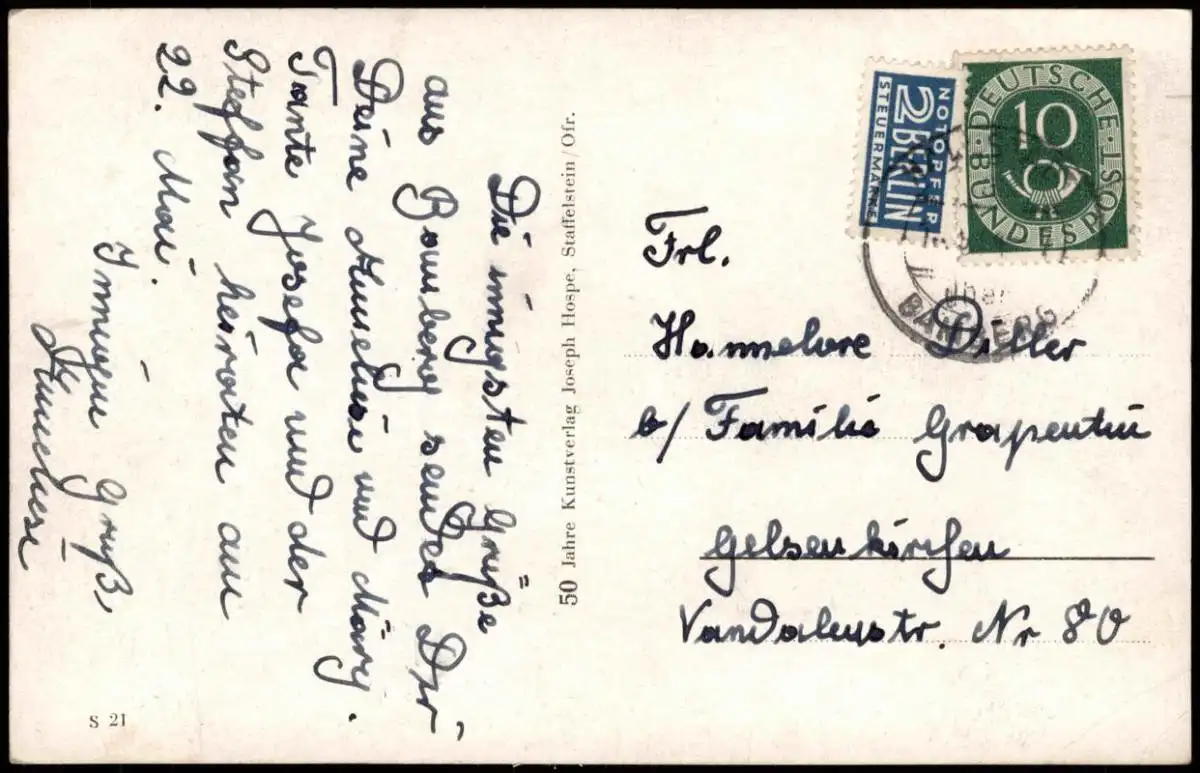 Die innigsten Grüße
aus Bamberg sendet Dir,
Deine Anneliese und Märy.
Tante Josefa und der
Steffan heiraten am
22. Mai.
Innigen Gruß,
Anneliese
50 Jahre Kunstverlag Joseph Hospe, Staffelstein/Ofr.
S 21
NOTOPFER
2 BERLIN
STEUERMARKE
DEUTSCHE BUNDESPOST
10
BAMBERG
Frl.
Hannelore Diller
b/ Familie Grapentin
Gelsenkirchen
Vandalenstr. Nr 80